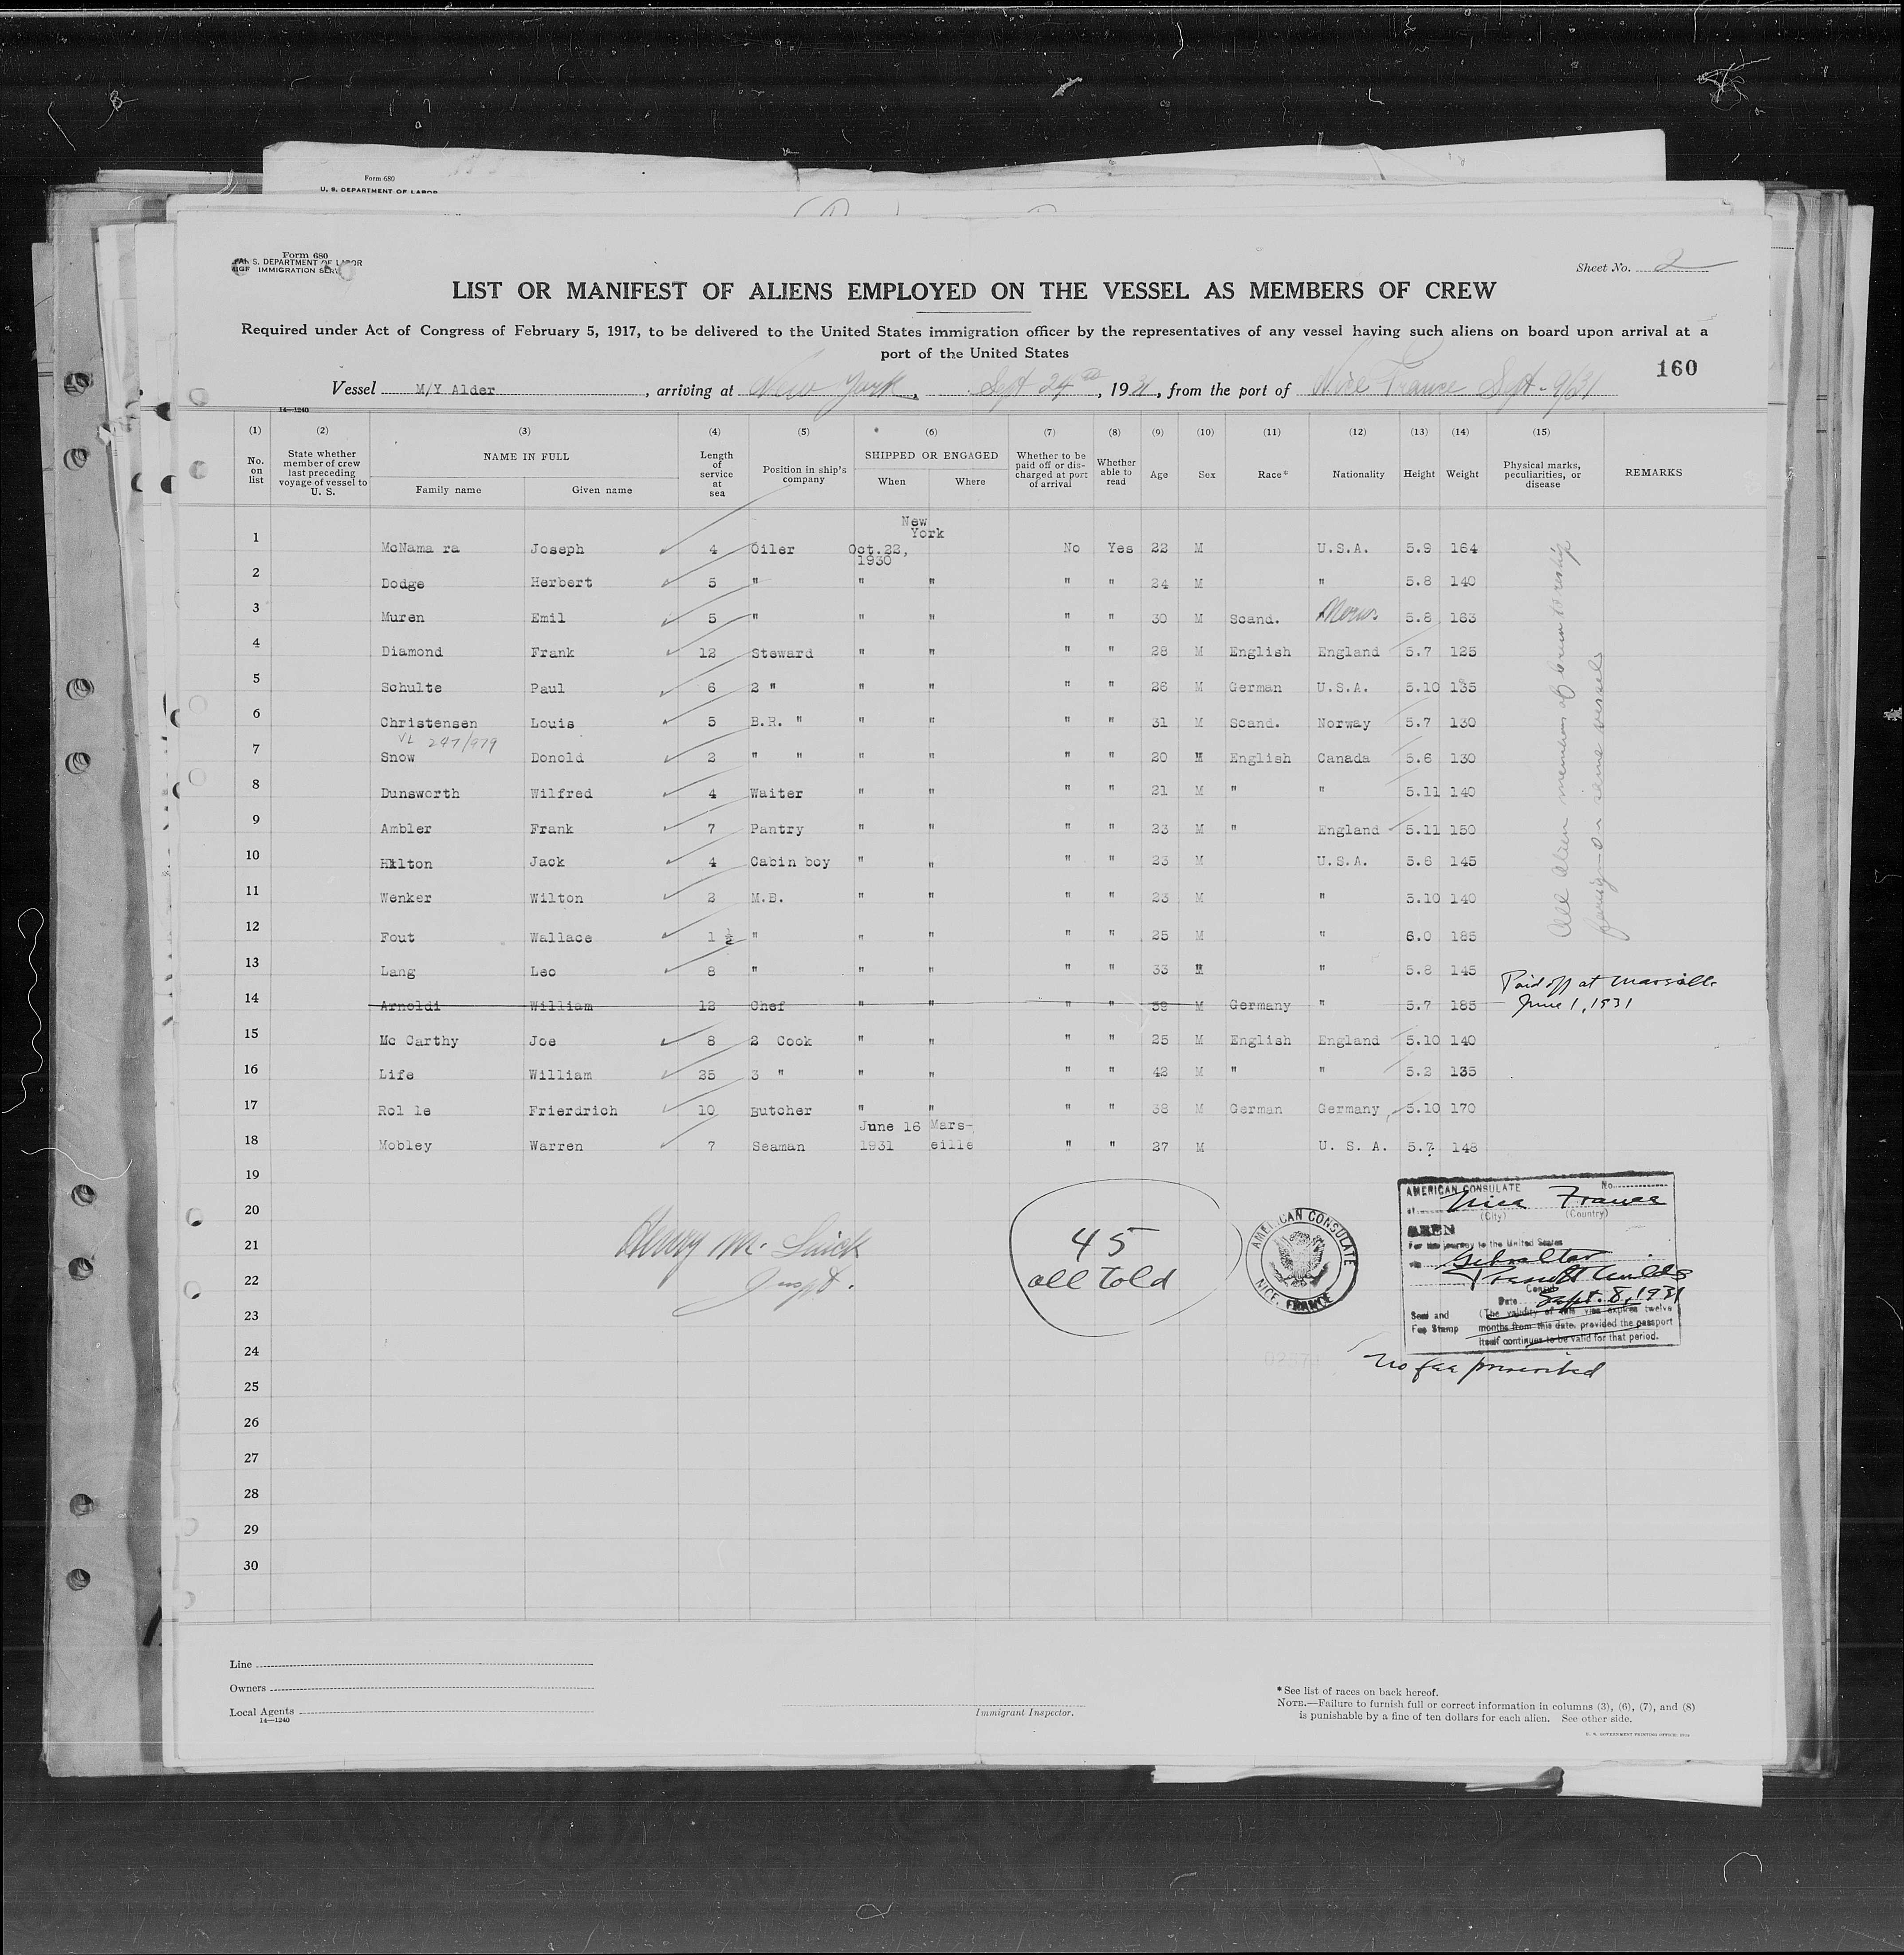 Form 680
U. S. DEPARTMENT OF LABOR
Form 680
S. DEPARTMENT OF LABOR
IMMIGRATION SERV
Sheet No. 2
LIST OR MANIFEST OF ALIENS EMPLOYED ON THE VESSEL AS MEMBERS OF CREW
Required under Act of Congress of February 5, 1917, to be delivered to the United States immigration officer by the representatives of any vessel having such aliens on board upon arrival at a
port of the United States
160
Vessel M/Y Alder, arriving at New York, Sept 24th, 1931, from the port of Nice France Sept-9/31
14—1240
(1) (2) (3) (4) (5) (6) (7) (8) (9) (10) (11) (12) (13) (14) (15)
No. on list State whether member of crew last preceding voyage of vessel to U. S. NAME IN FULL Family name Given name Length of service at sea Position in ship's company SHIPPED OR ENGAGED When Where Whether to be paid off or discharged at port of arrival Whether able to read Age Sex Race* Nationality Height Weight Physical marks, peculiarities, or disease REMARKS
New York
1 McNama ra Joseph 4 Oiler Oct.22, 1930 No Yes 22 M U.S.A. 5.9 164
2 Dodge Herbert 5 " " " " " 24 M " 5.8 140
3 Muren Emil 5 " " " " " 30 M Scand. Norw. 5.8 163
4 Diamond Frank 12 Steward " " " " 28 M English England 5.7 125
5 Schulte Paul 6 2 " " " " " 26 M German U.S.A. 5.10 135
6 Christensen Louis 5 B.R. " " " " " 31 M Scand. Norway 5.7 130
VL 247/979
7 Snow Donold 2 " " " " " " 20 M English Canada 5.6 130
8 Dunsworth Wilfred 4 Waiter " " " " 21 M " " 5.11 140
9 Ambler Frank 7 Pantry " " " " 23 M " England 5.11 150
10 Hilton Jack 4 Cabin boy " " " " 23 M U.S.A. 5.6 145
11 Wenker Wilton 2 M.B. " " " " 23 M " 5.10 140
12 Fout Wallace 1 ½ " " " " " 25 M " 6.0 185
13 Lang Leo 8 " " " " " 33 M " 5.8 145
14 Arnoldi William 12 Chef " " " " 39 M Germany " 5.7 185 Paid off at Marseille June 1, 1931
15 Mc Carthy Joe 8 2 Cook " " " " 25 M English England 5.10 140
16 Life William 25 3 " " " " " 42 M " " 5.2 135
17 Rol le Frierdrich 10 Butcher " " " " 38 M German Germany 5.10 170
18 Mobley Warren 7 Seaman June 16 1931 Mars-eille " " 27 M U. S. A. 5.7 148
All alien members of crew
same vessels
19
20
21
22
23
24
25
26
27
28
29
30
Henry Mc.
Inspt.
45
all told
AMERICAN CONSULATE
NICE, FRANCE
AMERICAN CONSULATE No.
at Nice France
(City) (Country)
SEEN
For the journey to the United States
via Gibraltar
Consul
Date Sept. 8, 1931
Seal and Fee Stamp
(The validity of this visa expires twelve
months from this date, provided the passport
itself continues to be valid for that period.
No fee prescribed
Line
Owners
Local Agents
14—1240
Immigrant Inspector.
* See list of races on back hereof.
NOTE.—Failure to furnish full or correct information in columns (3), (6), (7), and (8)
is punishable by a fine of ten dollars for each alien. See other side.